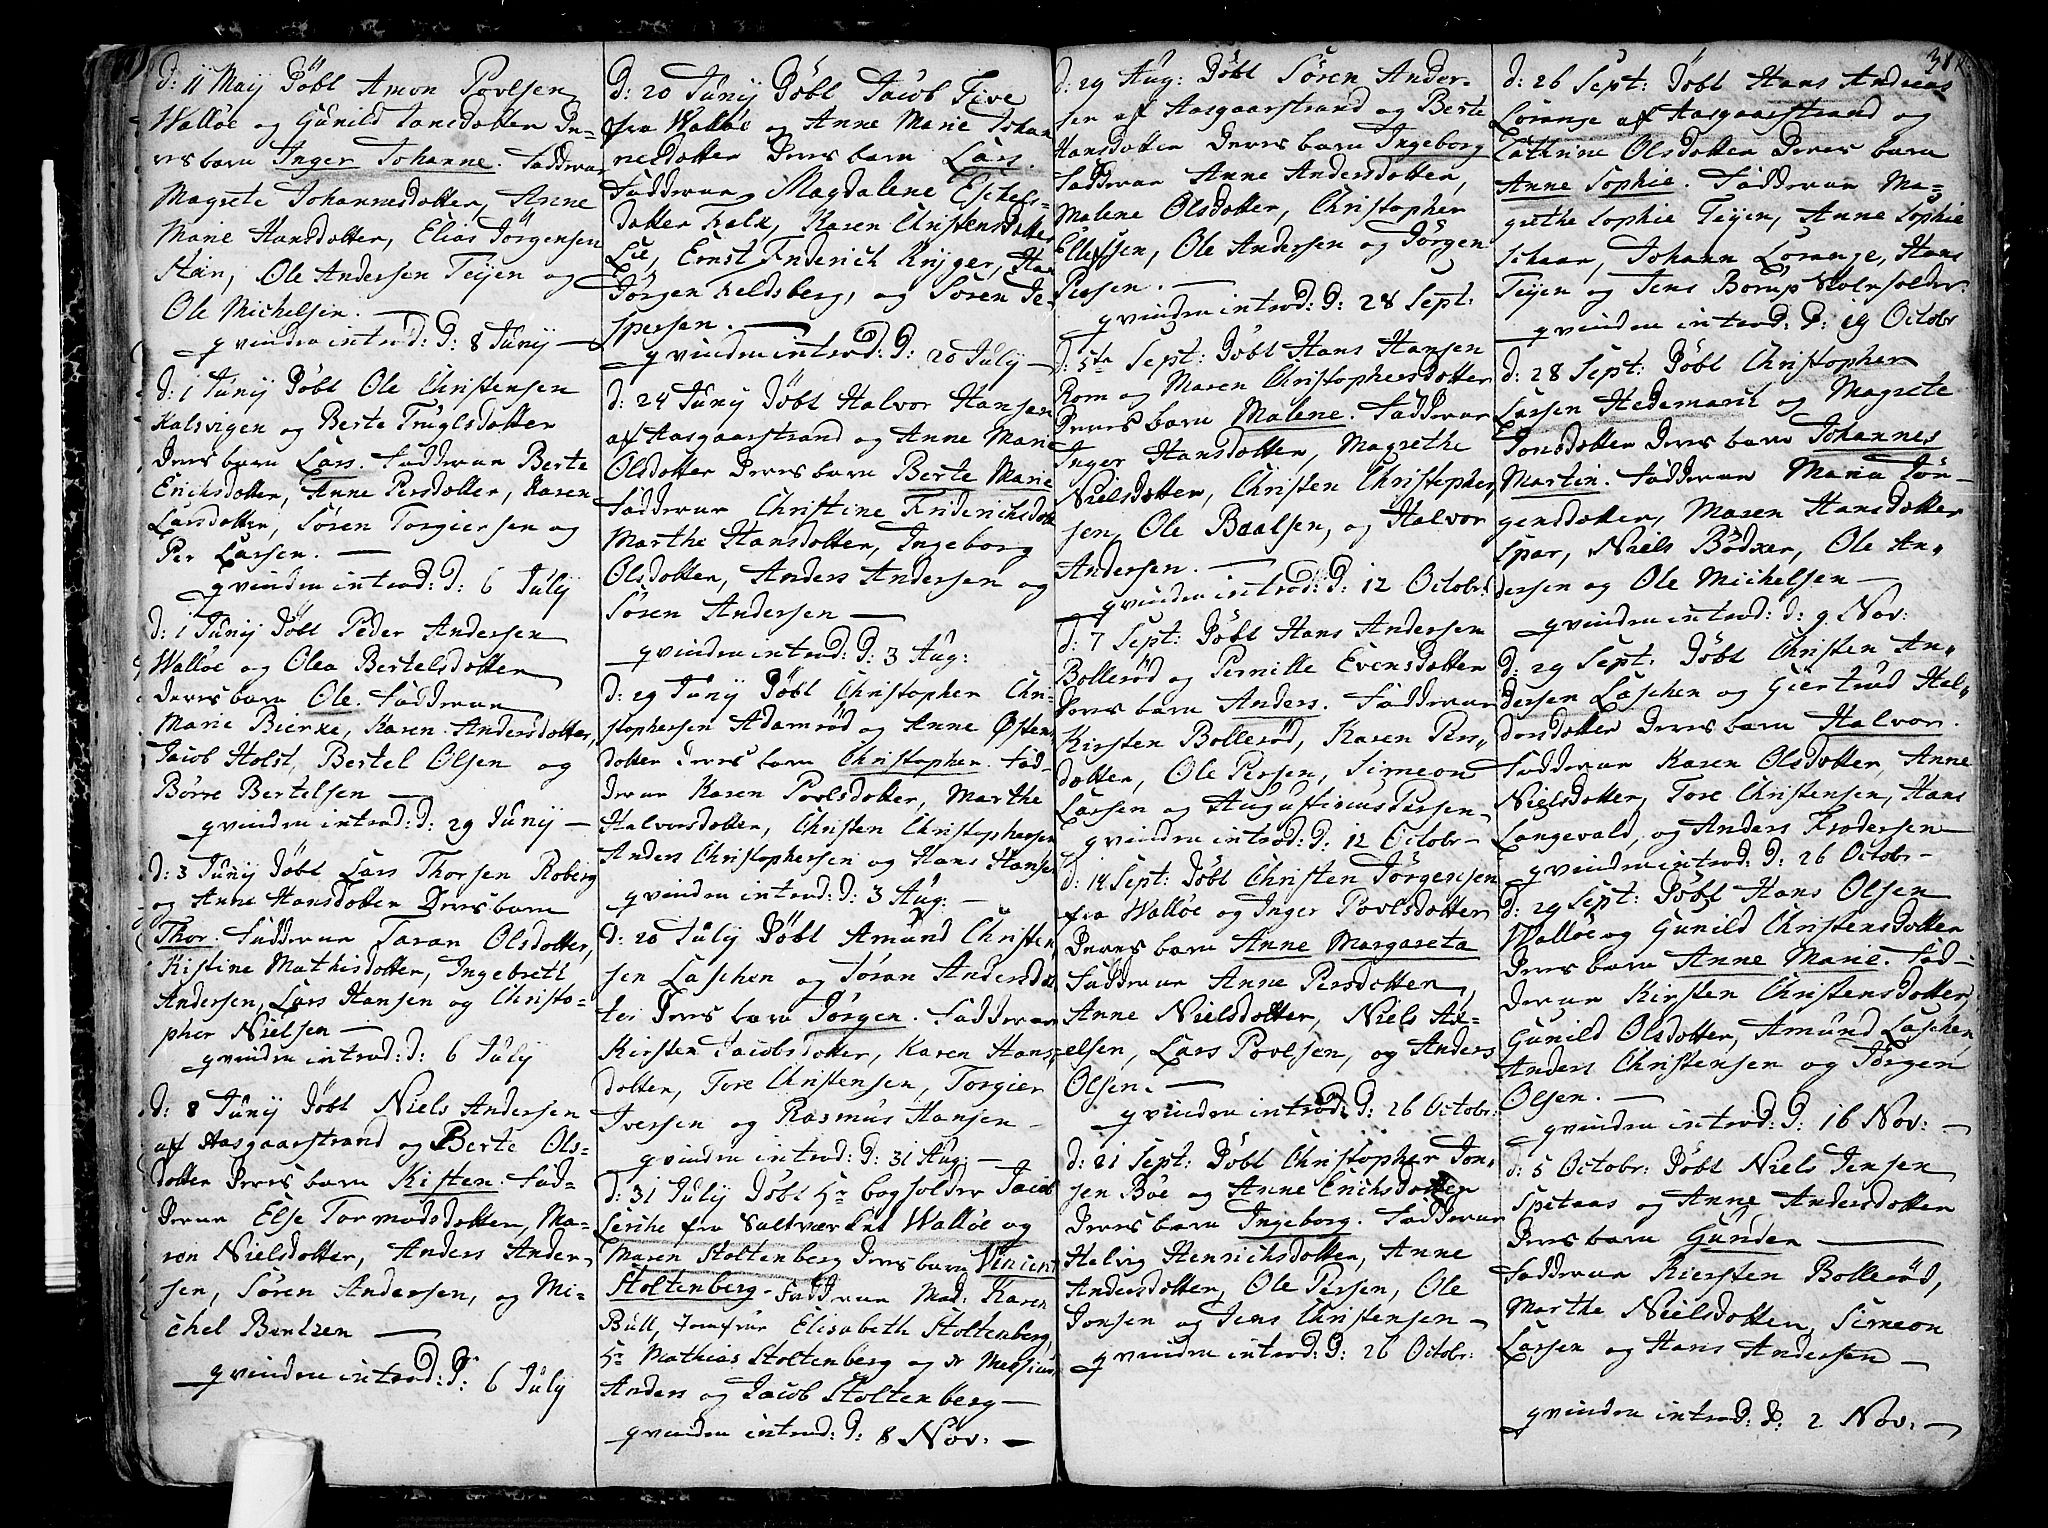 d: 11 Maij Døbt Amon Povlsen
Walløe og Gunild Jansdotter De-
res barn Inger Johanne. Faddrrar
Magrete Johannesdotter, Anne
Marie Hansdotter, Elias Jörgensen
Ole Andersen Teijen og
Ole Michelsen.
qvinden introd: D: 8 Junij
d: 1 Junij Døbt Ole Christensen
Kalsvigen og Berte Truglsdotter
Deres barn Lars. Fadderar Berte
Erichsdotter, Anne Persdotter, Karen
Larsdotter, Sören Torgiersen og
Per Larsen.
qvinden introd: D: 6 Julij
d: 1 Junij Døbt Peder Andersen
Walløe og Olea Bertelsdotter
Deres barn Ole. Fadderar
Marie Bierke, Karen Andersdotter,
Jacob Holst, Bertel Olsen og
Börre Bertelsen
qvinden introd: d: 29 Junij
d: 3 Junij Døbt Lars Thorsen Roberg
og Anne Hansdotter Deres barn
Thor. Fadderar Taran Olsdotter,
Kistine Mathisdotter, Ingebreth
Andersen, Lars Hansen og Christo-
pher Nielsen
qvinden introd: d: 6 Julij
d: 8 Junij Døbt Niels Andersen
aff Aasgaarstrand og Berte Ols-
dotter Deres barn Kisten. Fad-
derar Else Tormodsdotter, Ma-
ren Nielsdotter, Anders Ander-
sen, Sören Andersen, og Mi-
chel Berntzen
qvinden introd: D: 6 Julij
D: 20 Junij Døbt Jacob Five
fra Walløe og Anne Marie Johan
nesdotter Deres barn Lars.
Fadderar Magdalene Eschels-
dotter Falk, Karen Christensdotter
Lie, Ernst Friderich Krijger, Han
Jörgen Feldsberg, og Sören Je-
spersen.
qvinden introd: D: 20 Julij
d: 24 Junij Døbt Halvor Hansen
aff Aasgaarstrand og Anne Marie
Olsdotter Deres barn Berte Marie
Fadderar Christine Friderichsdott
Marthe Hansdotter, Ingeborg
Olsdotter, Anders Andersen og
Sören Andersen
qvinden introd: D: 3 Aug:
d: 29 Junij Døbt Christopher Chri-
stophersen Adamrød og Anne Østens
dotter Deres barn Christopher. Fad-
derar Karen Povlsdotter, Marthe
Halvorsdotter, Christen Christophersen
Anders Christophersen og Hans Hansen
qvinden introd: D: 3 Aug:
d: 20 Julij Døbt Amund Christen
sen Laschen og Joran Andersdot
ter Deres barn Jörgen. Fadderar
Kirsten Jacobsdotter, Karen Hans-
dotter, Tore Christensen, Torgier
Iversen og Rasmus Hansen
qvinden introd: D: 31 Aug:
D: 31 Julij Døbt Hr bogholder Jacob
Lerche fra Saltværket Walløe og
Maren Stoltenberg Deres barn Vincent
Stoltenberg. Fadderar Mad: Karen
Bull, Jomfrue Elisabeth Stoltenberg,
Hr Mathias Stoltenberg og
Anders og Jacob Stoltenberg
qvinden introd: D: 8 Nov:
d: 29 Aug: Døbt Sören Ander-
sen af Aasgaarstrand og Berte
Hansdotter Deres barn Ingeborg
Fadderar Anne Andersdotter,
Malene Olsdotter, Christopher
Ellefsen, Ole Andersen og Jörgen
Persen.
qvinden introd: D: 28 Sept:
d: 5te Sept: Døbt Hans Hansen
Rom og Maren Christophersdotter
Deres barn Malene. Fadderar
Inger Hansdotter, Magrethe
Nielsdotter, Christen Christopher
sen, Ole Baalsen, og Halvor
Andersen.
qvinden introd: D: 12 Octobr:
d: 7 Sept: Døbt Hans Andersen
Bollerød og Pernille Evensdotter
Deres barn Anders. Fadderar
Kirsten Bollerød, Karen Pers-
dotter, Ole Persen, Simeon
Larsen og Augustinus Persen
qvinden introd: D: 12 Octobr
d: 14 Sept: Døbt Christen Jörgensen
fra Walløe og Inger Povlsdotter
Deres barn Anne Margareta
Fadderar Anne Persdotter,
Anne Nielsdotter, Niels Ax-
elsen, Lars Povelsen, og Anders
Olsen.
qvinden introd: D: 26 Octobr:
d: 21 Sept: Døbt Christopher Jon-
sen Bøe og Anne Erichsdotter
Deres barn Ingeborg. Fadderar
Helvig Henrichsdotter, Anne
Andersdotter, Ole Persen, Ole
Jonsen og Jens Christensen
qvinden introd: D: 26 Octobr:
d: 26 Sept: Døbt Hans Andreas
Lorange aff Aasgaarstrand og
Cathrine Olsdotter Deres barn
Anne Sophie. Fadderar Ma-
grethe Sophie Teijen, Anne Sophie
Schaar, Johann Lorange, Hans
Teijen og Jens Borup Skolholder:
qvinden introd: D: 19 Octobr
d: 28 Sept: Døbt Christopher
Larsen Hedemark og Magrete
Jonsdotter Deres barn Johannes
Martin. Fadderar Maria Jör-
gensdotter, Maren Hansdotter
Spar, Niels Bödker, Ole An-
dersen og Ole Michelsen
qvinden introd: d: 9 Nov:
D: 29 Sept: Døbt Christen An-
dersen Laschen og Giertrud Hal-
dorsdotter Deres barn Halvor.
Fadderar Karen Olsdotter, Anne
Nielsdotter, Tore Christensen, Hans
Langevald, og Anders Frodersen
qvinden introd: D: 26 Octobr
d: 29 Sept: Døbt Hans Olsen
Walløe og Gunild Christensdotter
Deres barn Anne Marie. Fad-
derar Kirsten Christensdotter,
Gunild Olsdotter, Amund Laschen,
Anders Christensen og Jörgen
Olsen.
qvinden introd: D: 16 Nov:
d: 5 Octobr: Døbt Niels Jensen
Spetaas og Anne Andersdotter
Deres barn Gunder
Fadderar Kiersten Bollerød,
Marthe Nielsdotter, Simeon
Larsen og Hans Andersen
qvinden introd: D: 2 Nov: